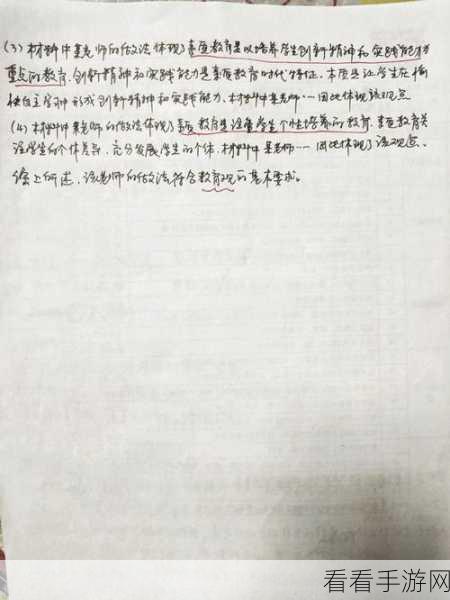 (3)材料中某老师的做法体现了素质教育是以培养学生创新精神和实践能力为
重点的教育。创新精神和实践能力是素质教育时代特征,本质是让学生在愉
快自主学习中形成创新精神和实践能力。材料中某老师……因此体现该观点
(4)材料中某老师的做法体现了素质教育是注重学生个性培养的教育。素质教育关
注学生的个体差异,充分发展学生的个体。材料中某老师……因此体现了该观点。
综上所述,该老师的做法符合教育观的基本要求。
看看手游网